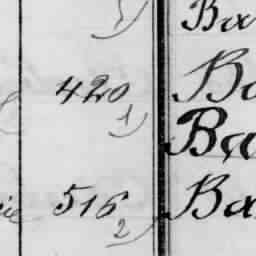 Ba
420 Ba
1) Ba
516 Ba
2)